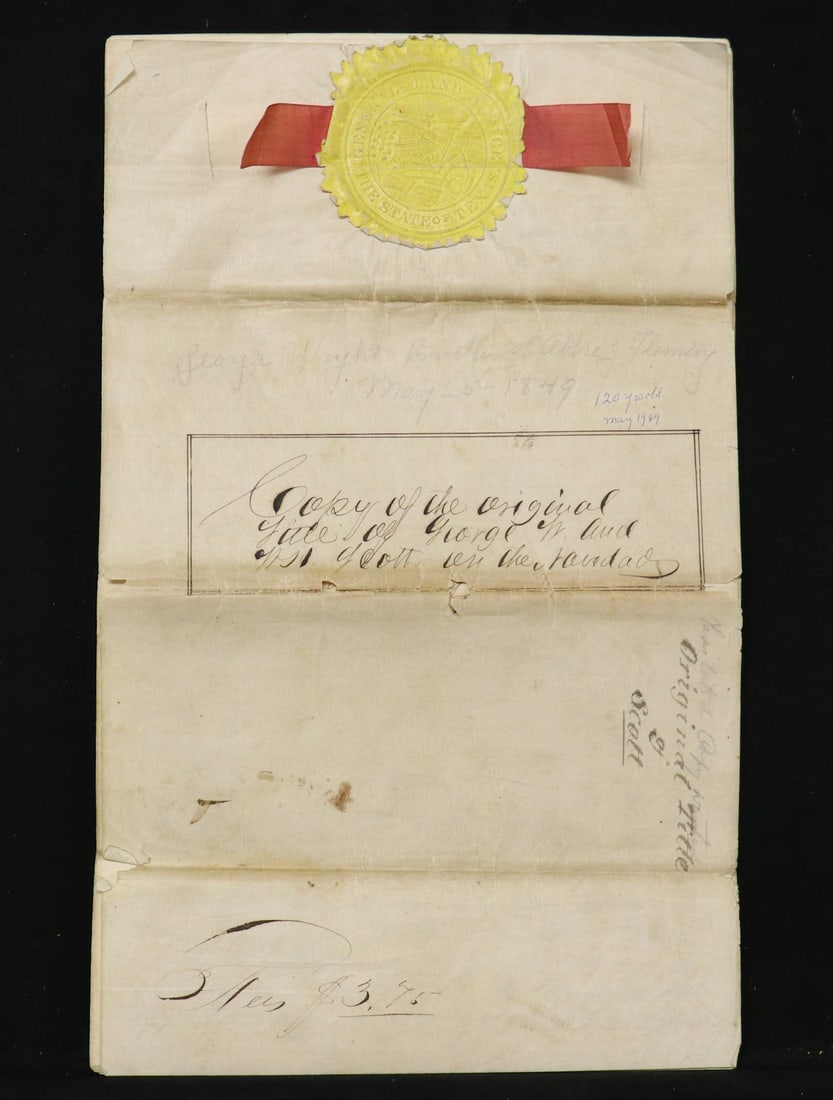 GENERAL LAND OFFICE
THE STATE OF TEXAS
George Wright Brother of Abbie Fleming
May 25 1849
120 yrs old.
may 1969
Copy of the original
Title of George W. and
Scott on the Navidad
Copy
Original Title
of
Scott
Fees $3.75